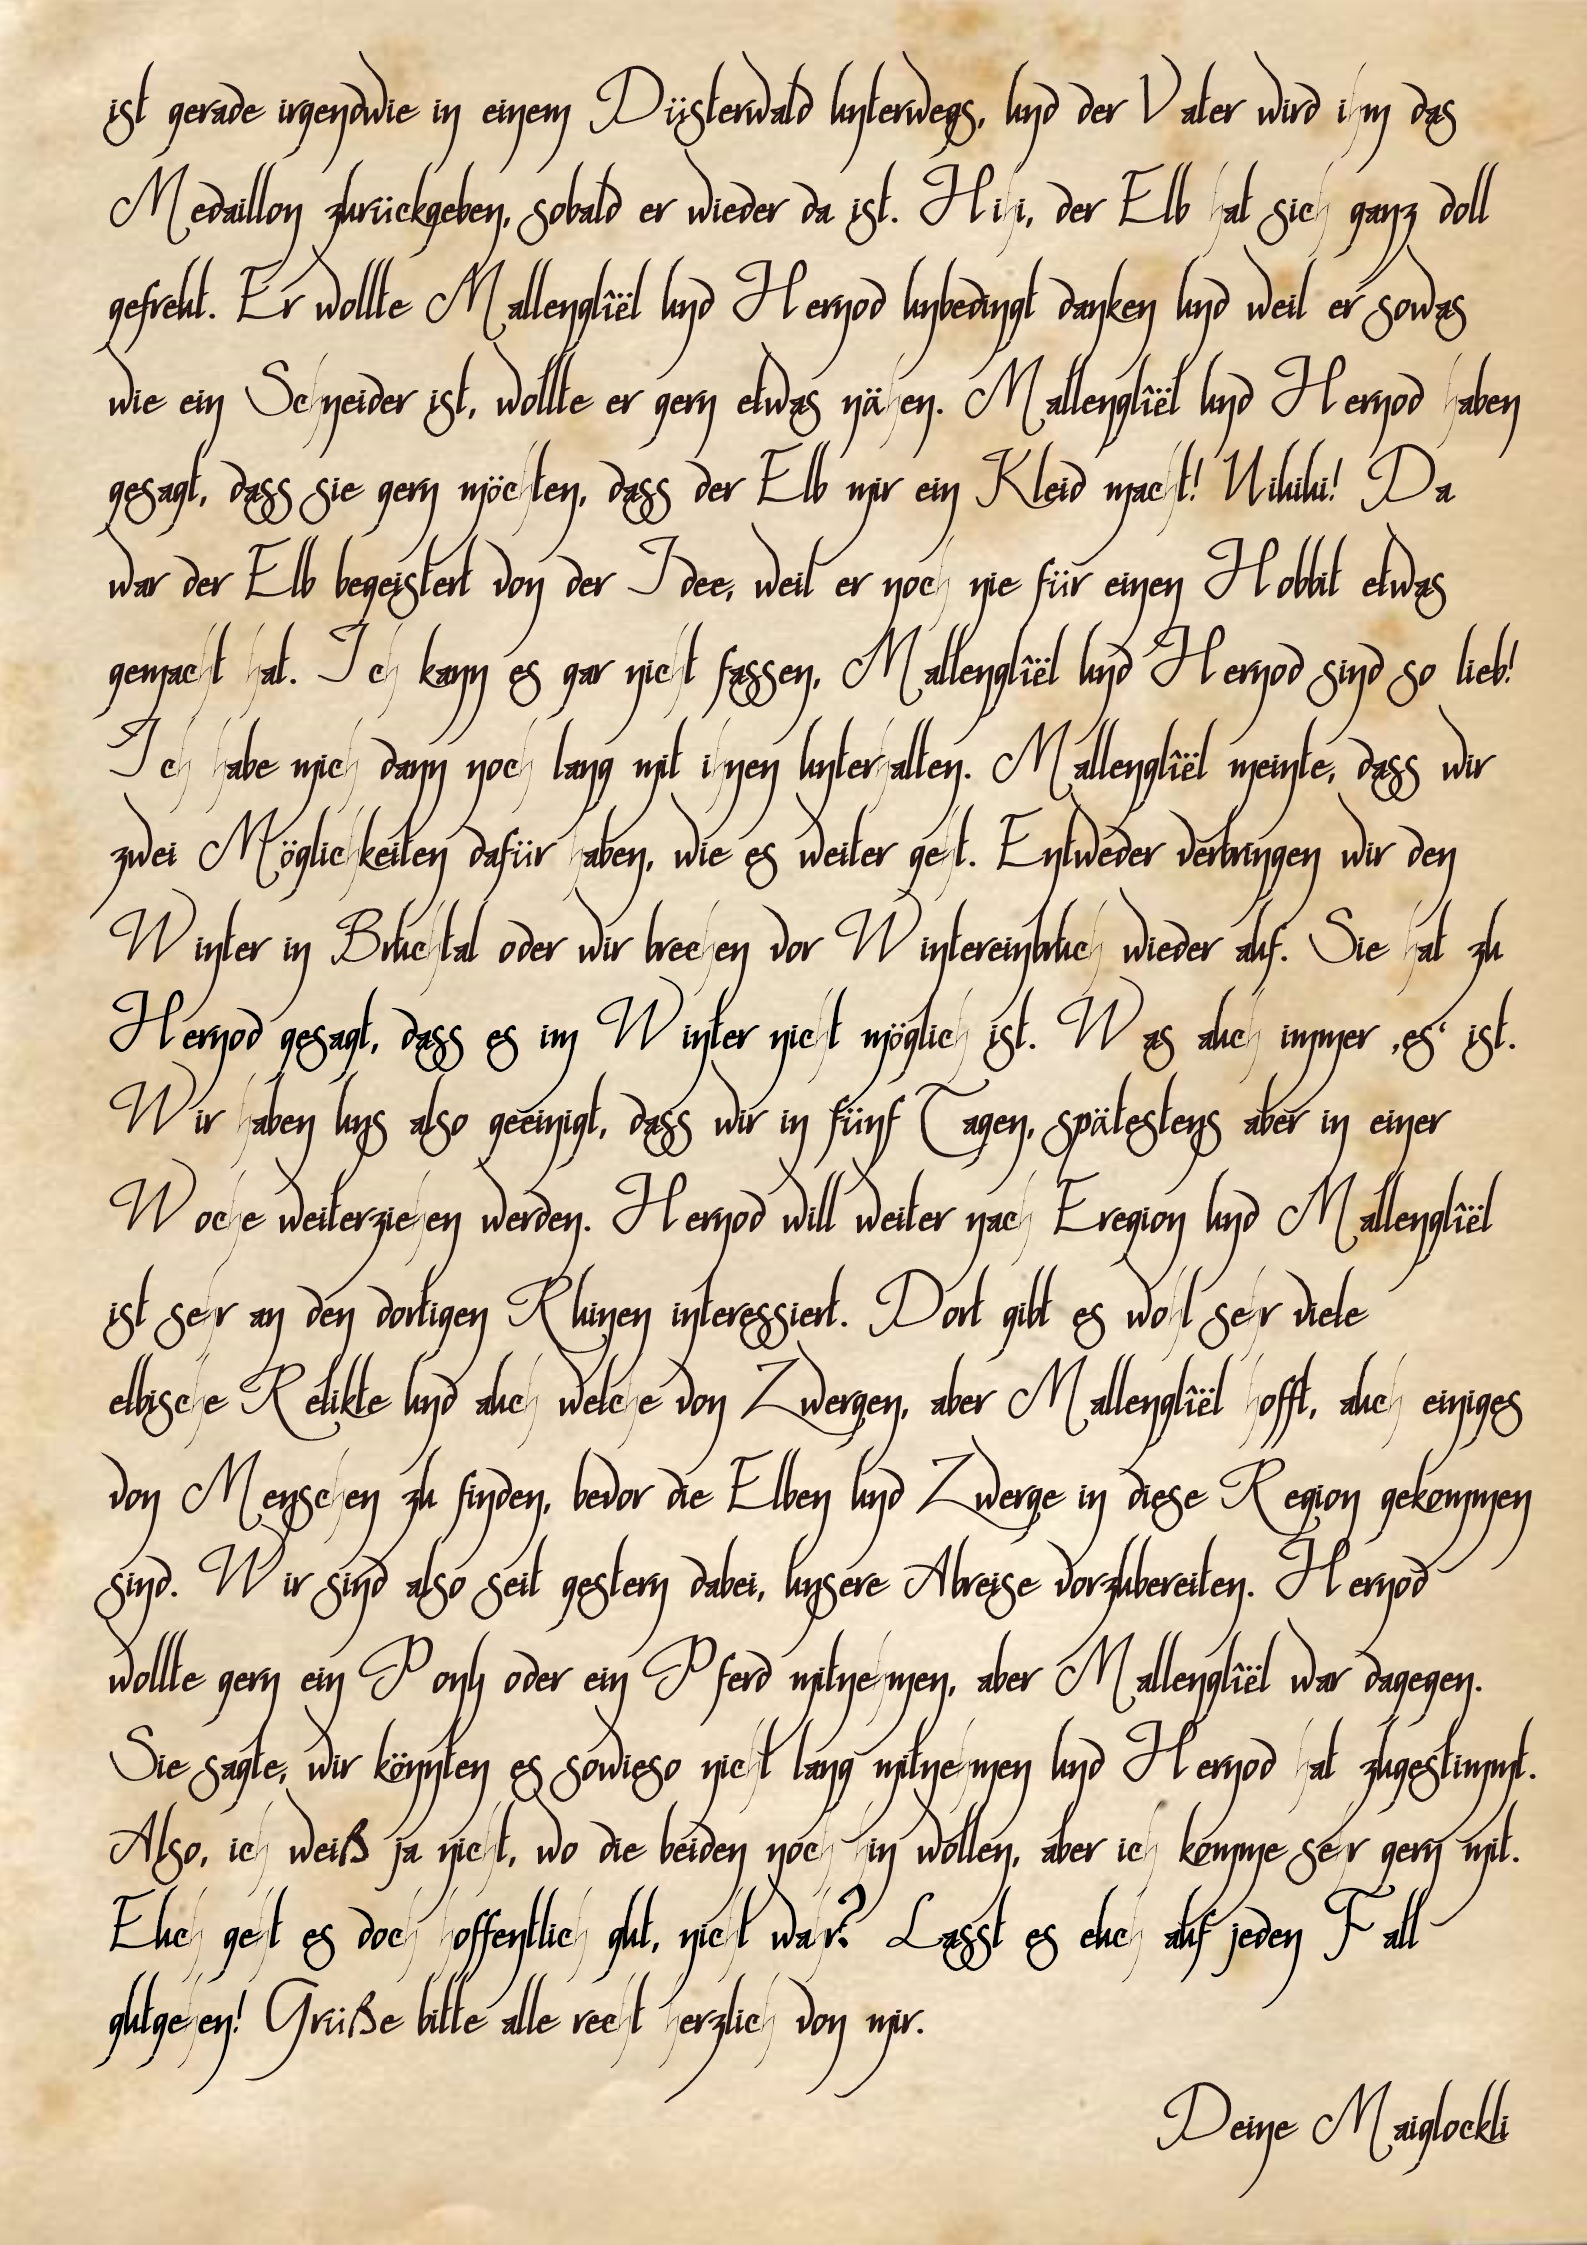 ist gerade irgendwie in einem Düsterwald unterwegs, und der Vater wird ihm das
Medaillon zurückgeben, sobald er wieder da ist. Hihi, der Elb hat sich ganz doll
gefreut. Er wollte Mallenglîël und Hernod unbedingt danken und weil er sowas
wie ein Schneider ist, wollte er gern etwas nähen. Mallenglîël und Hernod haben
gesagt, dass sie gern möchten, dass der Elb mir ein Kleid macht! Uiuiui! Da
war der Elb begeistert von der Idee, weil er noch nie für einen Hobbit etwas
gemacht hat. Ich kann es gar nicht fassen, Mallenglîël und Hernod sind so lieb!
Ich habe mich dann noch lang mit ihnen unterhalten. Mallenglîël meinte, dass wir
zwei Möglichkeiten dafür haben, wie es weiter geht. Entweder verbringen wir den
Winter in Bruchtal oder wir brechen vor Wintereinbruch wieder auf. Sie hat zu
Hernod gesagt, dass es im Winter nicht möglich ist. Was auch immer ‚es‘ ist.
Wir haben uns also geeinigt, dass wir in fünf Tagen, spätestens aber in einer
Woche weiterziehen werden. Hernod will weiter nach Eregion und Mallenglîël
ist sehr an den dortigen Ruinen interessiert. Dort gibt es wohl sehr viele
elbische Relikte und auch welche von Zwergen, aber Mallenglîël hofft, auch einiges
von Menschen zu finden, bevor die Elben und Zwerge in diese Region gekommen
sind. Wir sind also seit gestern dabei, unsere Abreise vorzubereiten. Hernod
wollte gern ein Pony oder ein Pferd mitnehmen, aber Mallenglîël war dagegen.
Sie sagte, wir könnten es sowieso nicht lang mitnehmen und Hernod hat zugestimmt.
Also, ich weiß ja nicht, wo die beiden noch hin wollen, aber ich komme sehr gern mit.
Euch geht es doch hoffentlich gut, nicht wahr? Lasst es euch auf jeden Fall
gutgehen! Grüße bitte alle recht herzlich von mir.
Deine Maiglockli